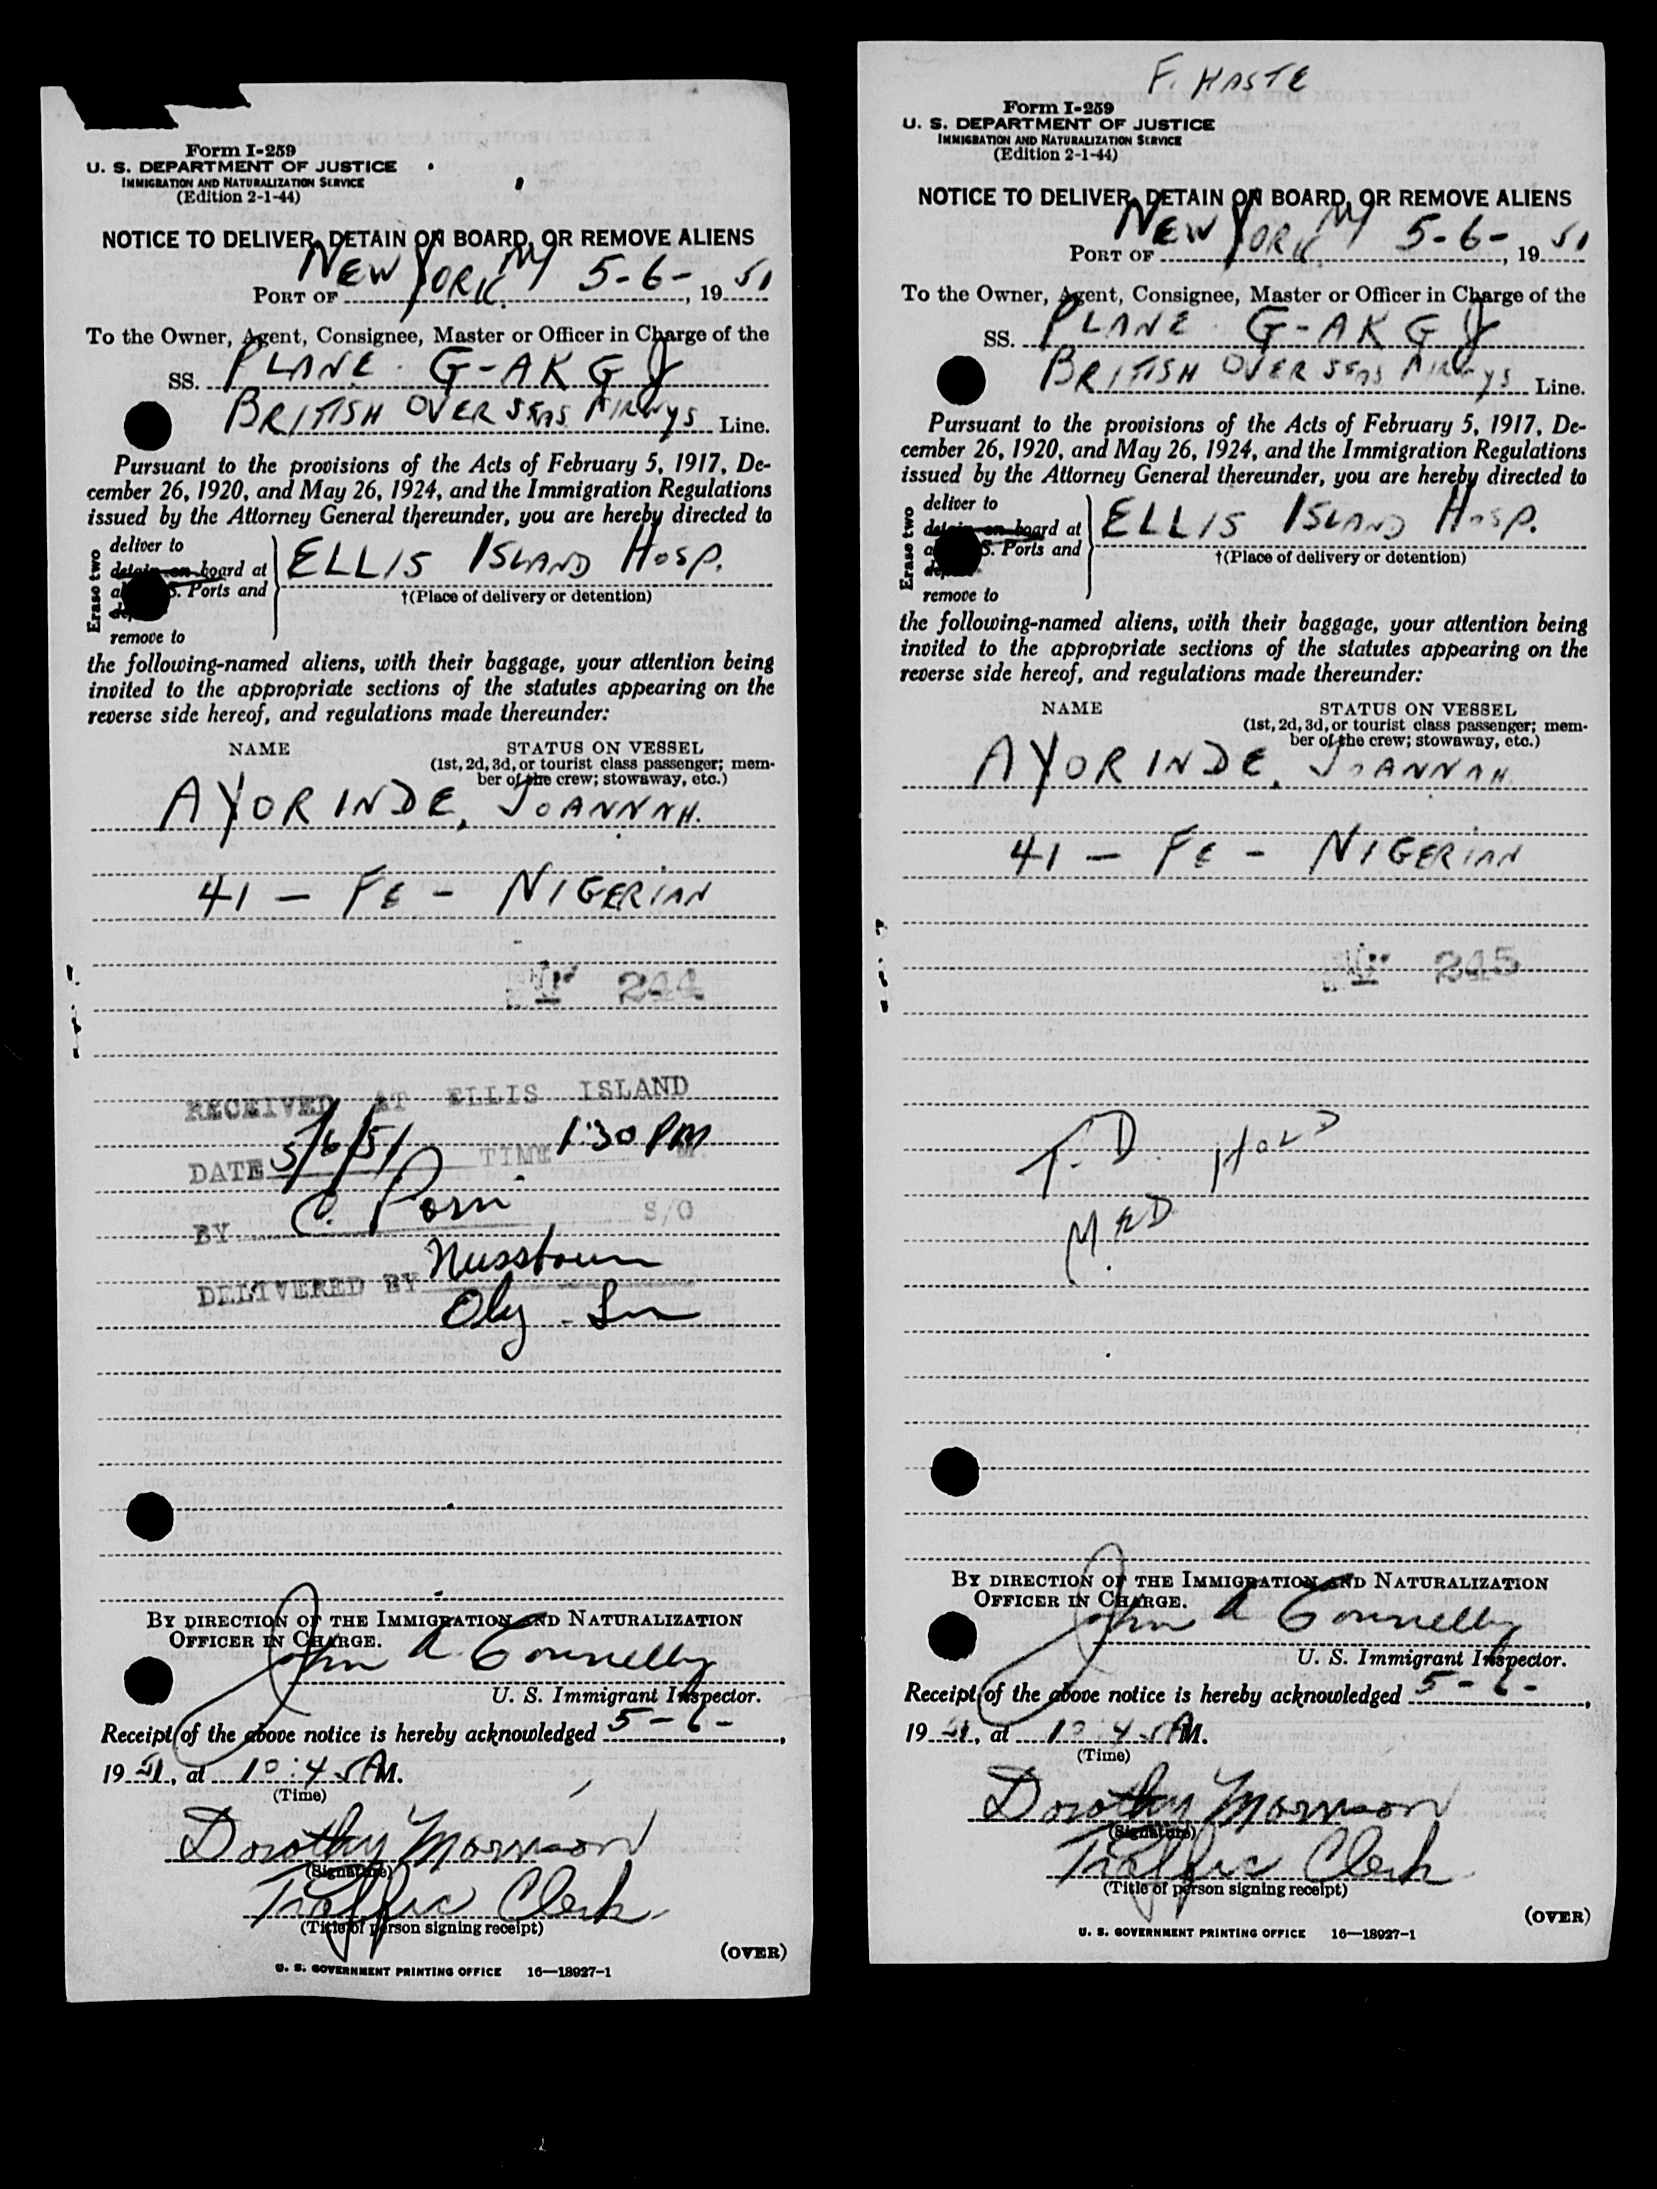 Form I-259
U. S. DEPARTMENT OF JUSTICE
IMMIGRATION AND NATURALIZATION SERVICE
(Edition 2-1-44)
NOTICE TO DELIVER, DETAIN ON BOARD, OR REMOVE ALIENS
PORT OF NEW YORK. NY 5-6-, 19 51
To the Owner, Agent, Consignee, Master or Officer in Charge of the
SS. PLANE. G-AKGJ
BRITISH OVERSEAS AIRWYS Line.
Pursuant to the provisions of the Acts of February 5, 1917, De-
cember 26, 1920, and May 26, 1924, and the Immigration Regulations
issued by the Attorney General thereunder, you are hereby directed to
Erase two
deliver to
detain on board at
S. Ports and
remove to
ELLIS ISLAND HOSP.
†(Place of delivery or detention)
the following-named aliens, with their baggage, your attention being
invited to the appropriate sections of the statutes appearing on the
reverse side hereof, and regulations made thereunder:
NAME STATUS ON VESSEL
(1st, 2d, 3d, or tourist class passenger; mem-
ber of the crew; stowaway, etc.)
AYORINDE, JOANNAH.
41 - FE - NIGERIAN
244
RECEIVED AT ELLIS ISLAND
DATE 5/6/51 TIME 1:30 PM M.
BY C. S/O
DELIVERED BY
BY DIRECTION OF THE IMMIGRATION AND NATURALIZATION
OFFICER IN CHARGE.
John A Connelly
U. S. Immigrant Inspector.
Receipt of the above notice is hereby acknowledged 5-6-,
19 51, at 10:45 AM.
(Time)
Dorothy Morrison
(Signature)
Traffic Clerk
(Title of person signing receipt)
(OVER)
U. S. GOVERNMENT PRINTING OFFICE 16—18927-1
F. HASTE
Form I-259
U. S. DEPARTMENT OF JUSTICE
IMMIGRATION AND NATURALIZATION SERVICE
(Edition 2-1-44)
NOTICE TO DELIVER, DETAIN ON BOARD, OR REMOVE ALIENS
PORT OF NEW YORK. NY 5-6-, 19 51
To the Owner, Agent, Consignee, Master or Officer in Charge of the
SS. PLANE. G-AKGJ
BRITISH OVERSEAS AIRWYS Line.
Pursuant to the provisions of the Acts of February 5, 1917, De-
cember 26, 1920, and May 26, 1924, and the Immigration Regulations
issued by the Attorney General thereunder, you are hereby directed to
Erase two
deliver to
detain on board at
S. Ports and
remove to
ELLIS ISLAND HOSP.
†(Place of delivery or detention)
the following-named aliens, with their baggage, your attention being
invited to the appropriate sections of the statutes appearing on the
reverse side hereof, and regulations made thereunder:
NAME STATUS ON VESSEL
(1st, 2d, 3d, or tourist class passenger; mem-
ber of the crew; stowaway, etc.)
AYORINDE, JOANNAH.
41 - FE - NIGERIAN
245
T.D. HOLD
MED
BY DIRECTION OF THE IMMIGRATION AND NATURALIZATION
OFFICER IN CHARGE.
John A Connelly
U. S. Immigrant Inspector.
Receipt of the above notice is hereby acknowledged 5-6-,
19 51, at 10:45 AM.
(Time)
Dorothy Morrison
(Signature)
Traffic Clerk
(Title of person signing receipt)
(OVER)
U. S. GOVERNMENT PRINTING OFFICE 16—18927-1